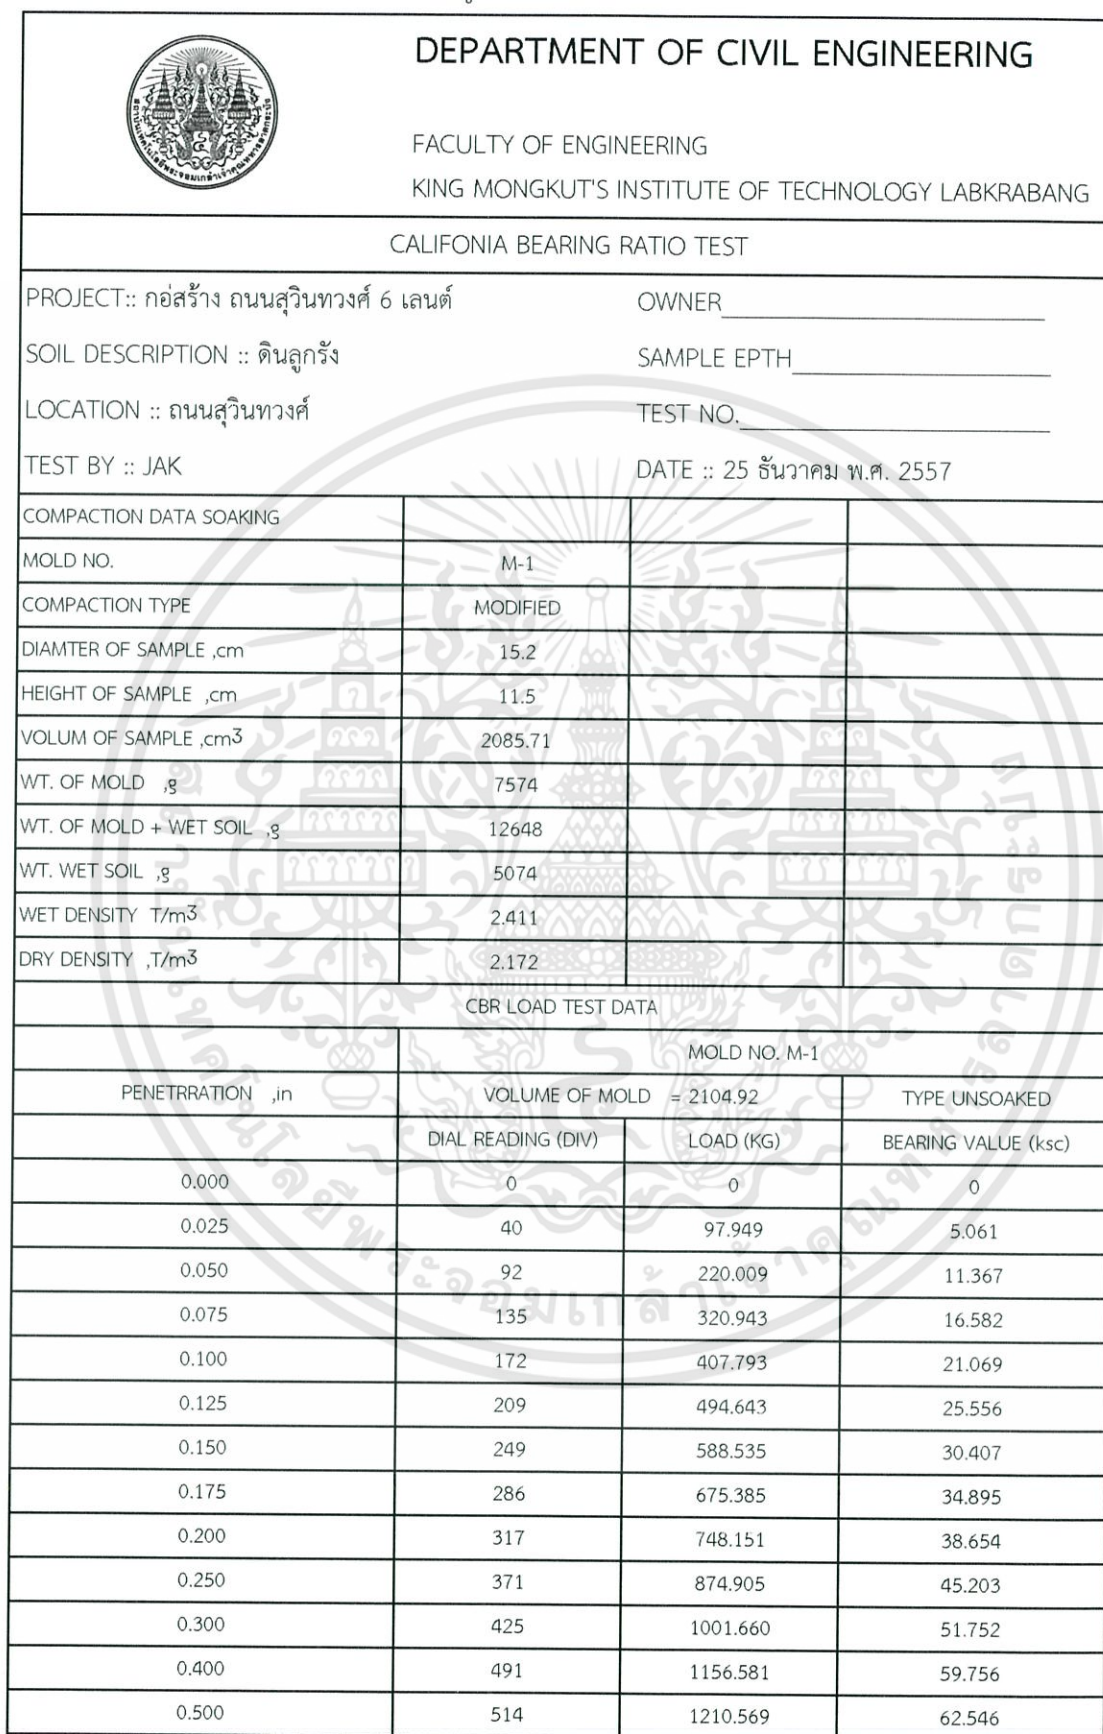 DEPARTMENT OF CIVIL ENGINEERING
FACULTY OF ENGINEERING
KING MONGKUT'S INSTITUTE OF TECHNOLOGY LABKRABANG
CALIFONIA BEARING RATIO TEST
PROJECT:: กอ่สร้าง ถนนสุวินทวงศ์ 6 เลนต์ OWNER
SOIL DESCRIPTION :: ดินลูกรัง SAMPLE EPTH
LOCATION :: ถนนสุวินทวงศ์ TEST NO.
TEST BY :: JAK DATE :: 25 ธันวาคม พ.ศ. 2557
COMPACTION DATA SOAKING
MOLD NO. M-1
COMPACTION TYPE MODIFIED
DIAMTER OF SAMPLE ,cm 15.2
HEIGHT OF SAMPLE ,cm 11.5
VOLUM OF SAMPLE ,cm3 2085.71
WT. OF MOLD ,g 7574
WT. OF MOLD + WET SOIL ,g 12648
WT. WET SOIL ,g 5074
WET DENSITY T/m3 2.411
DRY DENSITY ,T/m3 2.172
CBR LOAD TEST DATA
MOLD NO. M-1
PENETRRATION ,in VOLUME OF MOLD = 2104.92 TYPE UNSOAKED
DIAL READING (DIV) LOAD (KG) BEARING VALUE (ksc)
0.000 0 0 0
0.025 40 97.949 5.061
0.050 92 220.009 11.367
0.075 135 320.943 16.582
0.100 172 407.793 21.069
0.125 209 494.643 25.556
0.150 249 588.535 30.407
0.175 286 675.385 34.895
0.200 317 748.151 38.654
0.250 371 874.905 45.203
0.300 425 1001.660 51.752
0.400 491 1156.581 59.756
0.500 514 1210.569 62.546
สถาบันเทคโนโลยีพระจอมเกล้าเจ้าคุณทหารลาดกระบัง